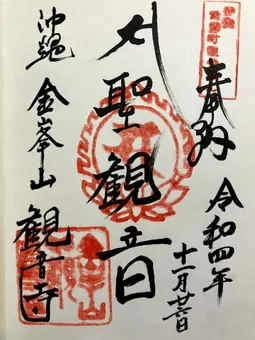 奉拝
令和四年
十一月廿六日
聖観音
沖縄 金峯山
観音寺